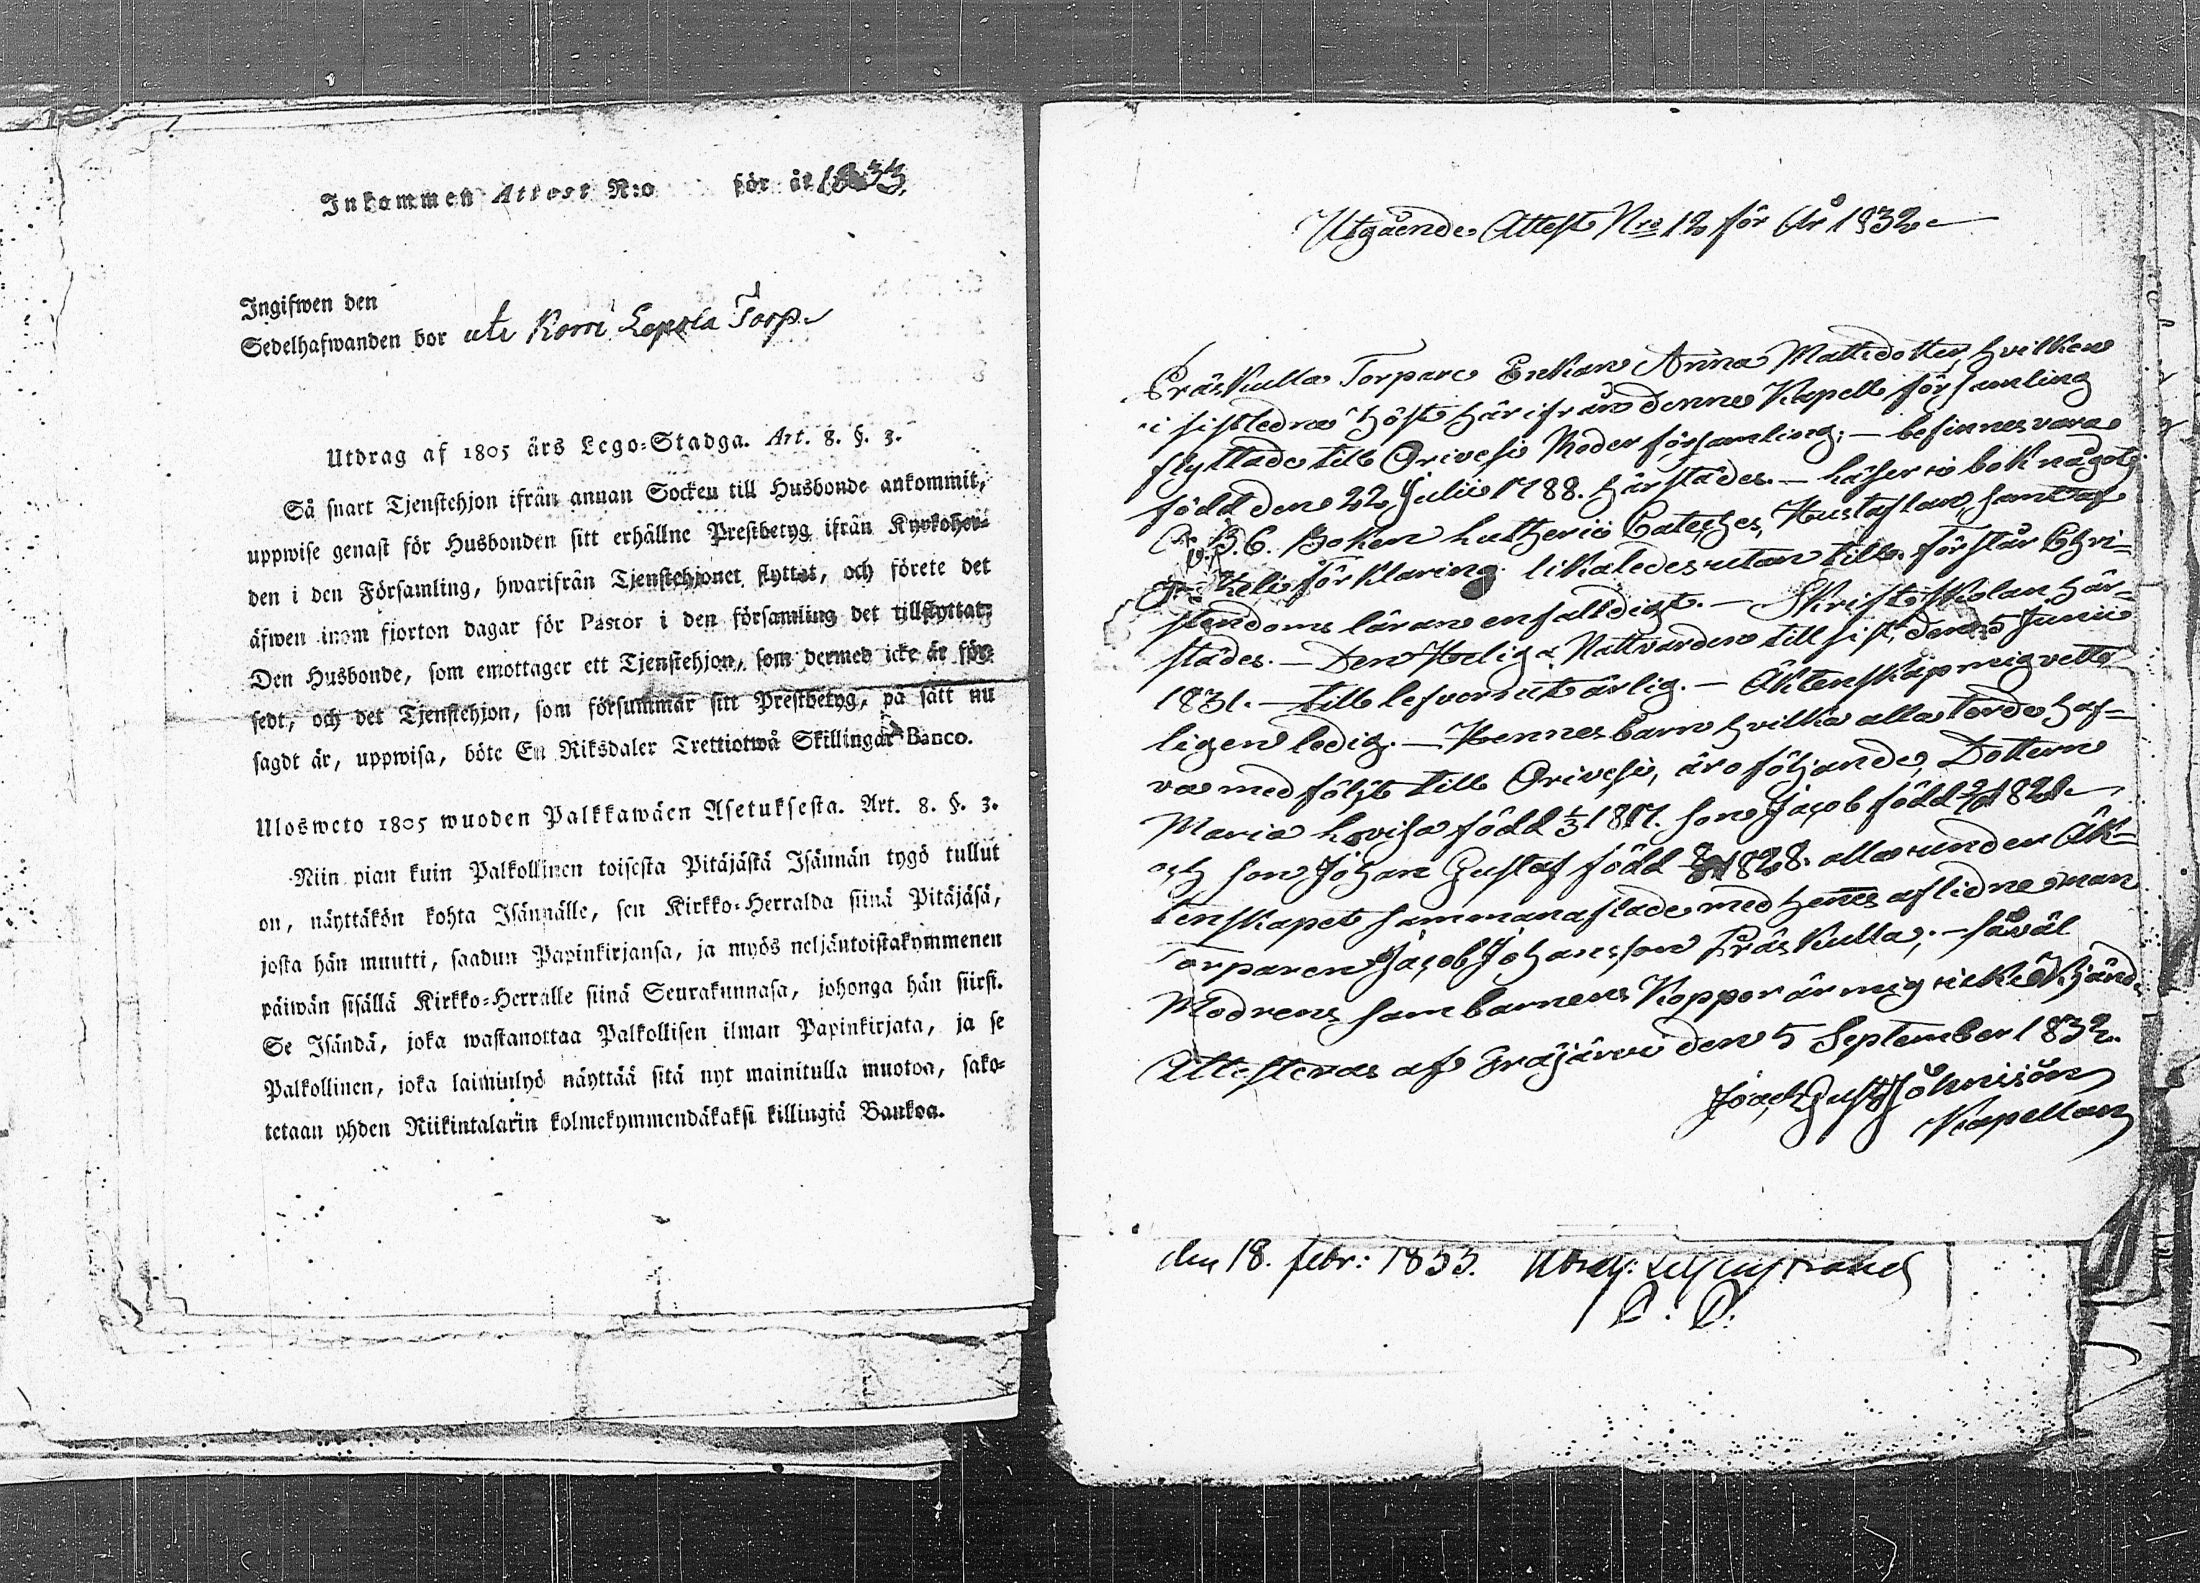 Inkommen Attest N:o för år 1833.
Ingifwen den
Sedelhafwanden bor uti Korri Lepola Torp.
Utdrag af 1805 års Lego-Stadga. Art. 8. §. 3.
Så snart Tjenstehjon ifrån annan Socken till Husbonde ankommit,
uppwise genast för Husbonden sitt erhållne Prestbetyg ifrån Kyrkoher-
den i den Församling, hwarifrån Tjenstehjonet flyttat, och förete det
äfwen inom fjorton dagar för Pastor i den församling det tillflyttat;
Den Husbonde, som emottager ett Tjenstehjon, som dermed icke är för-
sedt, och det Tjenstehjon, som försummar sitt Prestbetyg, på sätt nu
sagdt är, uppwisa, böte En Riksdaler Trettiotwå Skillingar Banco.
Ulosweto 1805 wuoden Palkkawäen Asetuksesta. Art. 8. §. 3.
Niin pian kuin Palkollinen toisesta Pitäjästä Isännän tygö tullut
on, näyttäkön kohta Isännälle, sen Kirkko-Herralda siinä Pitäjäsä,
josta hän muutti, saadun Papinkirjansa, ja myös neljäntoistakymmenen
päiwän sisällä Kirkko-Herralle siinä Seurakunnasa, johonga hän siirsi.
Se Isändä, joka wastanottaa Palkollisen ilman Papinkirjata, ja se
Palkollinen, joka laiminlyö näyttää sitä nyt mainitulla muotoa, sako-
tetaan yhden Riikintalarin kolmekymmendäkaksi killingiä Bankoa.
Utgående Attest Nro 12 för År 1832
Präskulla Torpare Enkan Anna Mattsdotter, hvilken
i sistledna höst härifrån denne Kapell församling
flyttade till Orivesi Moder församling; — befinnes vara
född den 22 Julii 1788. härstädes. — Läser i bok något,
A.B.C. Boken Lutherii Cateches, Hustaflan, samt af
förklaring likaledes utan till. förstår Chri-
stendoms läran enfaldigt. — Skrifteskolan här-
städes. — Den Heliga Nattvarden till sist, den 5 Junii
1831. — till lefvernet ärlig. — Äktenskap mig vette-
ligen ledig. — Hennes barn hvilka alla torde haf-
va medföljt till Orivesi, äro följande, Dottern
Maria Lovisa född 1/3 1817. son Jacob född
och son Johan Gustaf född 1828. alla under Äk-
tenskapet sammanaflade med henes aflidne man
Torparen Jacob Johansson Präskulla; — såväl
Modrens sam barnens Koppor är mig icke kjände
Attesteras af Eräjärvi den 5 September 1832.
Gust: Johnisön
Kapellan
den 18. febr: 1833.